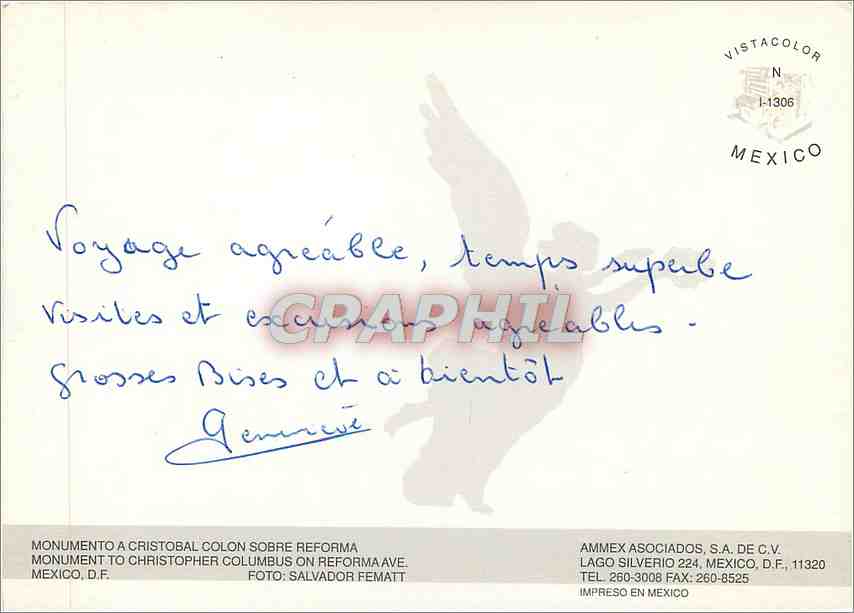 VISTACOLOR
N
I-1306
MEXICO
Voyage agréable, temps superbe
visites et excursions agréables -
grosses Bises et à bientôt
CPAPHIL
MONUMENTO A CRISTOBAL COLON SOBRE REFORMA
MONUMENT TO CHRISTOPHER COLUMBUS ON REFORMA AVE.
MEXICO, D.F. FOTO: SALVADOR FEMATT
AMMEX ASOCIADOS, S.A. DE C.V.
LAGO SILVERIO 224, MEXICO, D.F., 11320
TEL. 260-3008 FAX: 260-8525
IMPRESO EN MEXICO